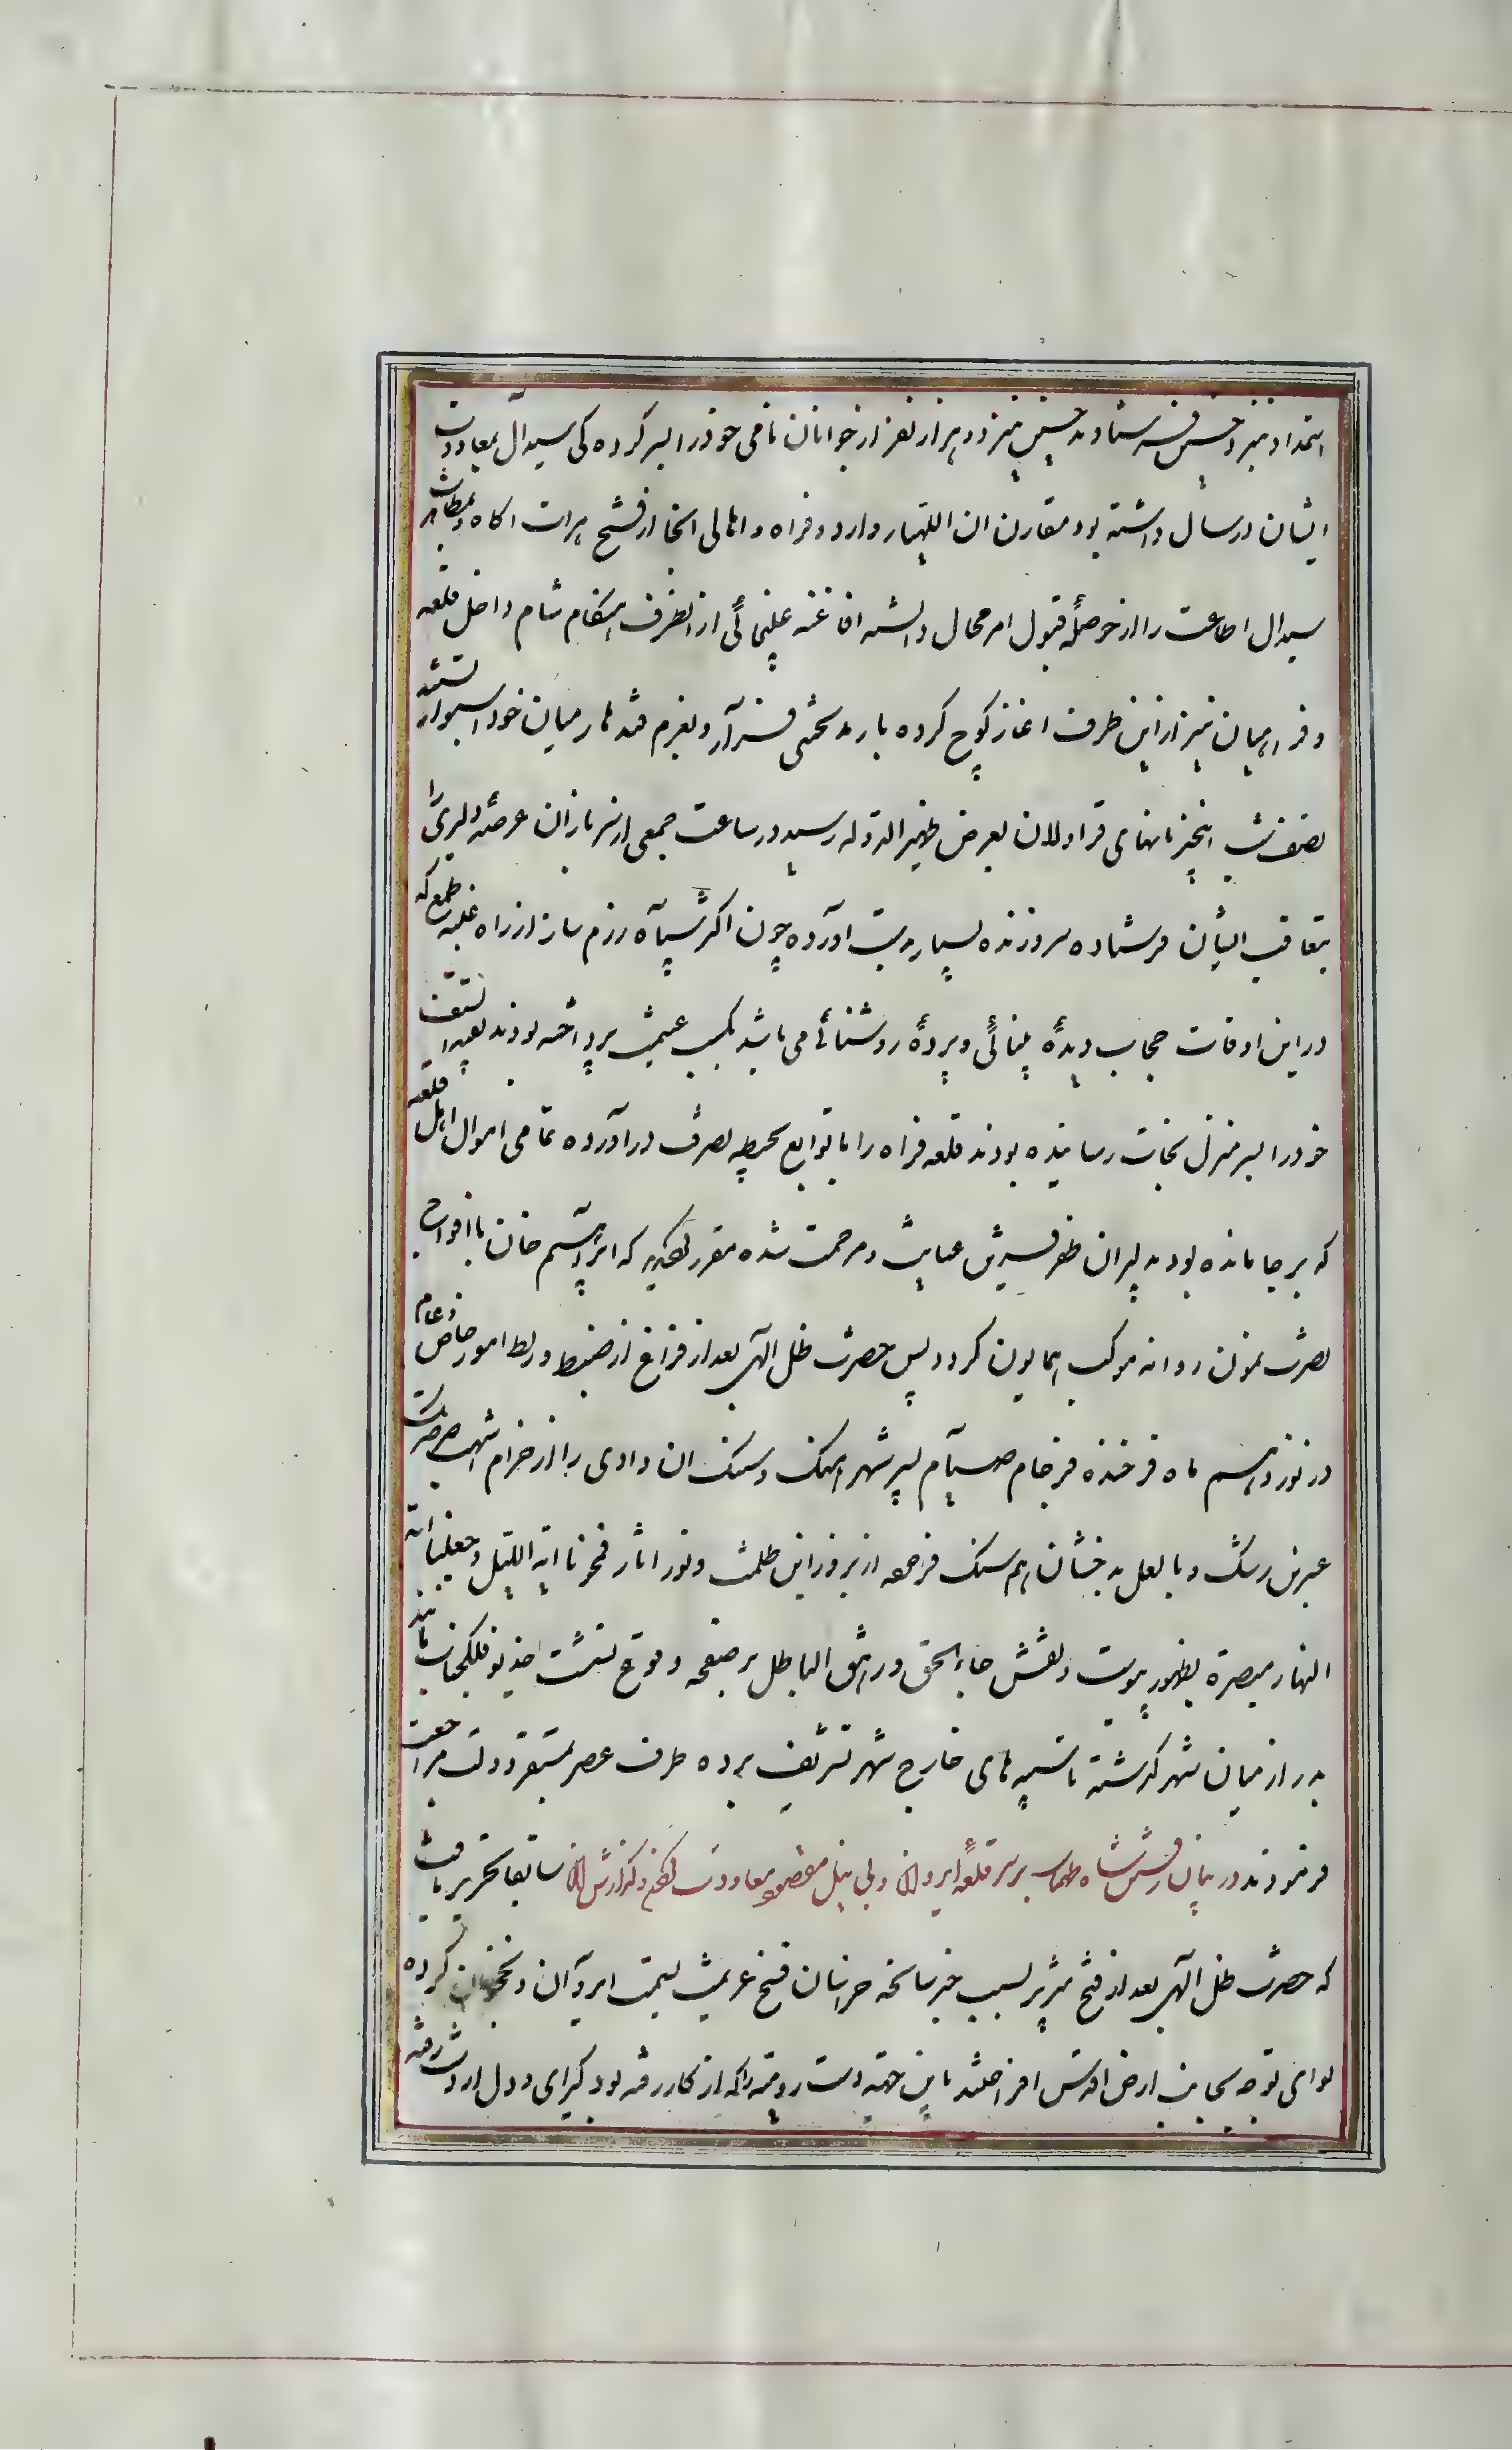 استمداد نیز نزد حسین فرستادند حسین نیز دو هزار نفر از جوانان نامی خود را بسر کرده کی سیدال بمعاودت
ایشان ارسال داشته بود مقارن ان اللهیار وارد فراه و اهالی انجا از فتح هرات اکاه و بمطابت
سیدال اطاعت را از حوصلهٔ قبول امر محال دانسته افاغنه غلیجائی از انطرف هنکام شام داخل قلعه
و فراهیان نیز از این طرف اغاز کوچ کرده بار بدبختی فرار و بعزم قندهار میان خود استوار بستند
نصف شب اینخبر نامهای قراولان بعرض ظهیر الدوله رسید در ساعت جمعی از سربازان عرصهٔ دلیری را
بتعاقب ایشان فرستاده سر و زنده بسیار بدست اورده چون اکثر سپاه رزم ساز از راه غلبه طمع که
در این اوقات حجاب دیدهٔ بینائی و پردهٔ روشنائی می باشد بکسب غنیمت پرداخته بودند بقیه السیف
خود را بسر منزل نجات رسانیده بودند قلعه فراه را با توابع بحیطه تصرف در آورده تمامی اموال اهل قلعه
که بر جا مانده بود بدلیران ظفر قرین عنایت و مرحمت شده مقرر کردید که ابراهیم خان با افواج
نصرت نمون روانه موکب همایون کردد پس حضرت ظل الهی بعد از فراغ از ضبط و ربط امور خاص و عام
در نوزدهم ماه فرخنده فرجام صیام بسیر شهر اهنک و سنک ان وادی را از خرام اشهب صرصرتک
عبرین رشک و با لعل بدخشان هم سنک فرموده از بروز این ظلمت و نور اثار فمحونا ایة اللیل و جعلنا ایة
النهار مبصرة بظهور پیوست و نقش جاء الحق و زهق الباطل بر صفحه وقوع نشست خدیو فلکجناب مانند
بدر از میان شهر کذشته تا تپه های خارج شهر تشریف برده طرف عصر بمستقر دولت مراجعت
فرمودند در بیان رفتن شاه طهماسب بر سر قلعهٔ ایروان و بی نیل مقصود معاودت کردن و کذارش ان سابقا تحریر یافت
که حضرت ظل الهی بعد از فتح تبریز بسبب خبر سانحه خراسان فسخ عزیمت بسمت ایروان و نخجوان کرده
لوای توجه بجانب ارض اقدس افراختند باین جهت دست رومیه را که از کار رفته بود کیرای و دل از دست رفته